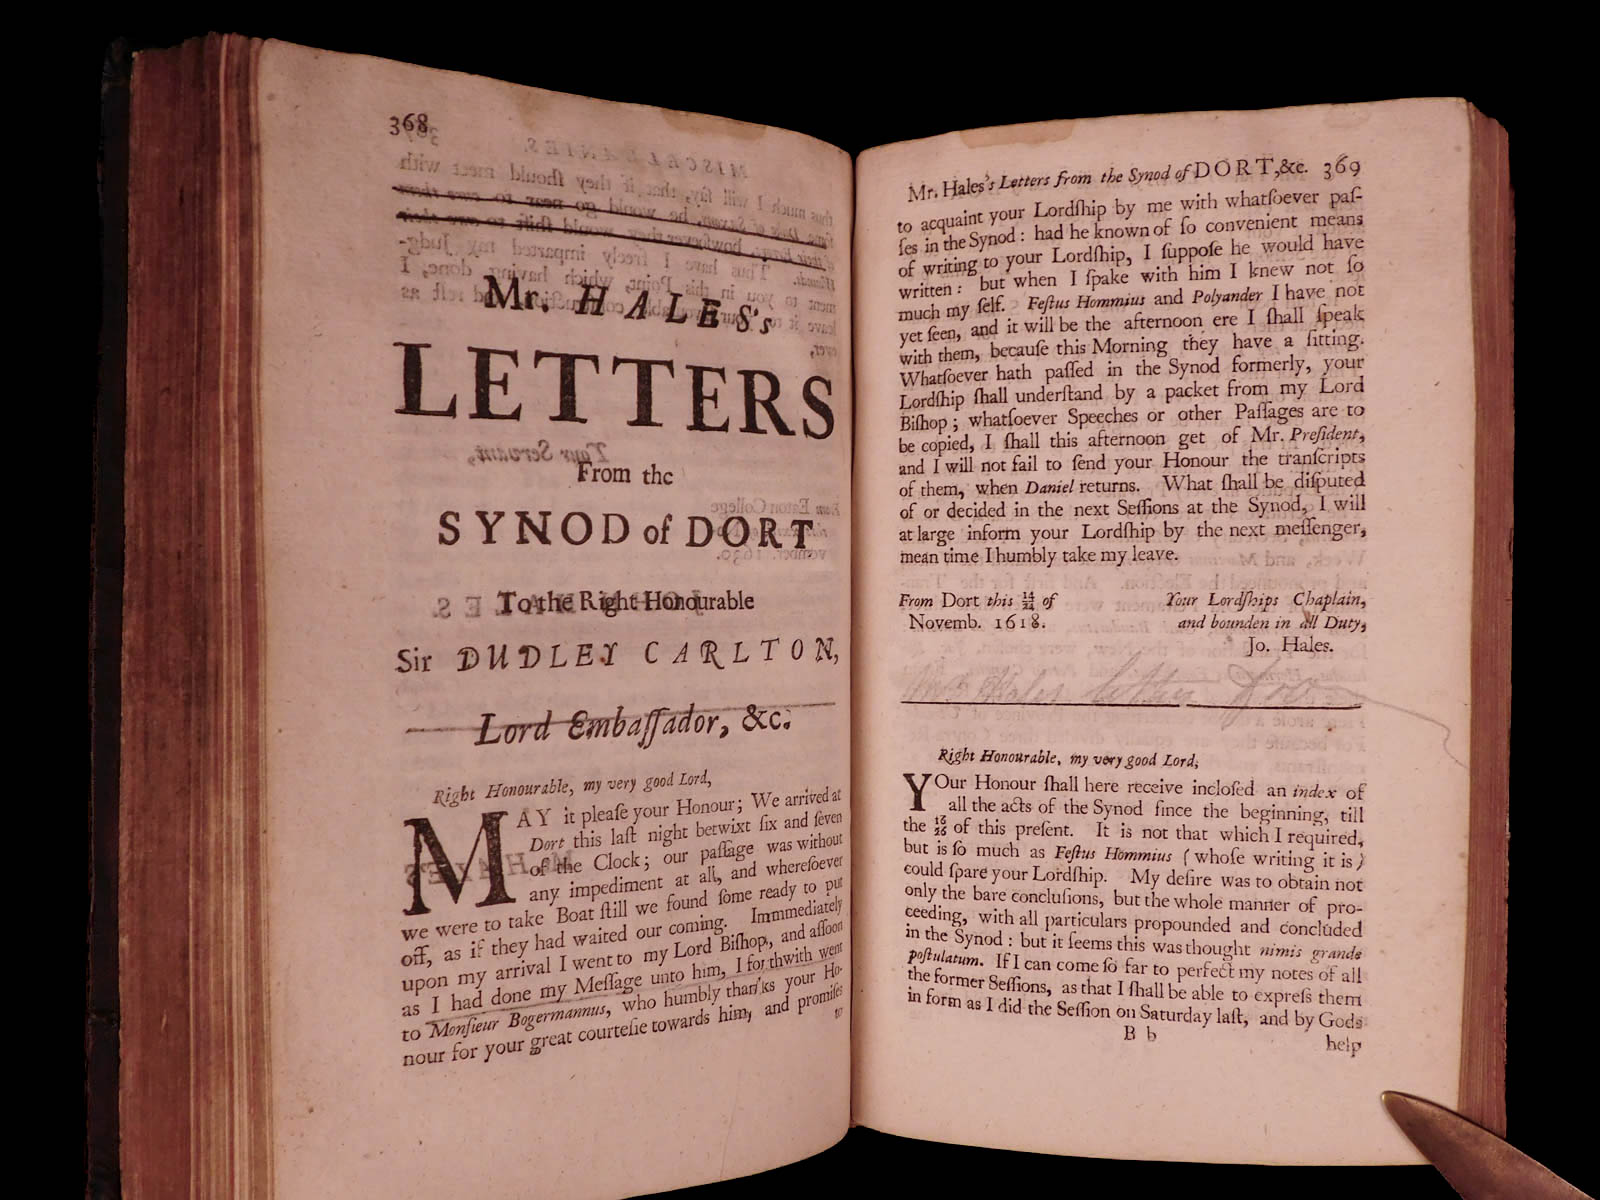 368
Mr. HALES's
LETTERS
From the
SYNOD of DORT
To the Right Honourable
Sir DUDLEY CARLTON,
Lord Embaſſador, &c.
Right Honourable, my very good Lord,
MAY it pleaſe your Honour; We arrived at
Dort this laſt night betwixt ſix and ſeven
of the Clock; our paſſage was without
any impediment at all, and whereſoever
we were to take Boat ſtill we found ſome ready to put
off, as if they had waited our coming. Immmediately
upon my arrival I went to my Lord Biſhop, and aſſoon
as I had done my Meſſage unto him, I forthwith went
to Monſieur Bogermannus, who humbly thanks your Ho-
nour for your great courteſie towards him, and promiſes
to
Mr. Hales's Letters from the Synod of DORT, &c. 369
to acquaint your Lordſhip by me with whatſoever paſ-
ſes in the Synod: had he known of ſo convenient means
of writing to your Lordſhip, I ſuppoſe he would have
written: but when I ſpake with him I knew not ſo
much my ſelf. Feſtus Hommius and Polyander I have not
yet ſeen, and it will be the afternoon ere I ſhall ſpeak
with them, becauſe this Morning they have a ſitting.
Whatſoever hath paſſed in the Synod formerly, your
Lordſhip ſhall underſtand by a packet from my Lord
Biſhop; whatſoever Speeches or other Paſſages are to
be copied, I ſhall this afternoon get of Mr. Preſident,
and I will not fail to ſend your Honour the tranſcripts
of them, when Daniel returns. What ſhall be diſputed
of or decided in the next Seſſions at the Synod, I will
at large inform your Lordſhip by the next meſſenger,
mean time I humbly take my leave.
From Dort this 14/24 of
Novemb. 1618.
Your Lordſhips Chaplain,
and bounden in all Duty,
Jo. Hales.
Right Honourable, my very good Lord,
YOur Honour ſhall here receive incloſed an index of
all the acts of the Synod ſince the beginning, till
the 16/26 of this preſent. It is not that which I required,
but is ſo much as Feſtus Hommius (whoſe writing it is)
could ſpare your Lordſhip. My deſire was to obtain not
only the bare concluſions, but the whole manner of pro-
ceeding, with all particulars propounded and concluded
in the Synod: but it ſeems this was thought nimis grande
poſtulatum. If I can come ſo far to perfect my notes of all
the former Seſſions, as that I ſhall be able to expreſs them
in form as I did the Seſſion on Saturday laſt, and by Gods
B b
help